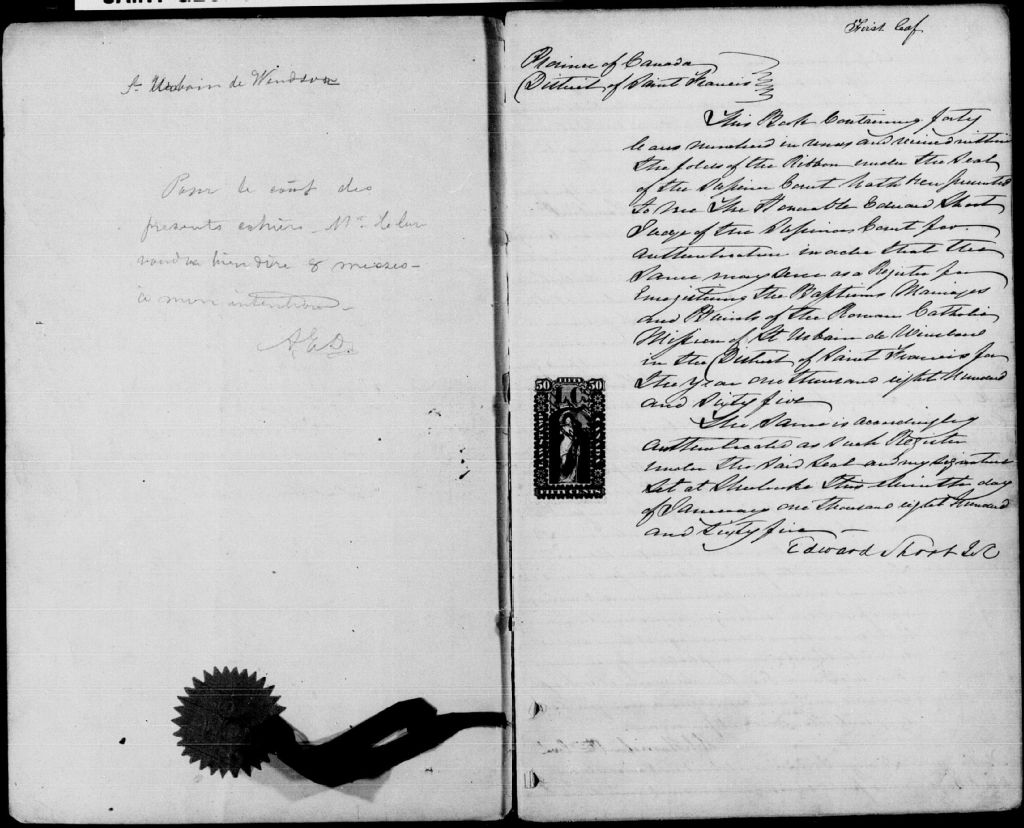 St Urbain de Windsor
Pour le coût des
presents cahiers, Mr
voudra bien dire 8 messes
à mon intention
First leaf
Province of Canada
District of Saint Francis
This Book Containing forty
leaves numbered in and
the folds of the Ribbon under the Seal
of the Superior Court hath been presented
to me The Honorable Edward Short
Judge of the Superior Court for
authentication in order that the
Same may serve as a Register for
Enregistering the Baptisms Marriages
and Burials of the Roman Catholic
Mission of St Urbain de Windsor
in the District of Saint Francis for
The Year one thousand eight hundred
and Sixty five
The Same is accordingly
authenticated as such Register
under the said Seal and my signature
Set at Sherbrooke This day
of January one thousand eight hundred
and sixty five
Edward Short
50 FIFTY 50
L.C.
LAW STAMP
CANADA
FIFTY CENTS